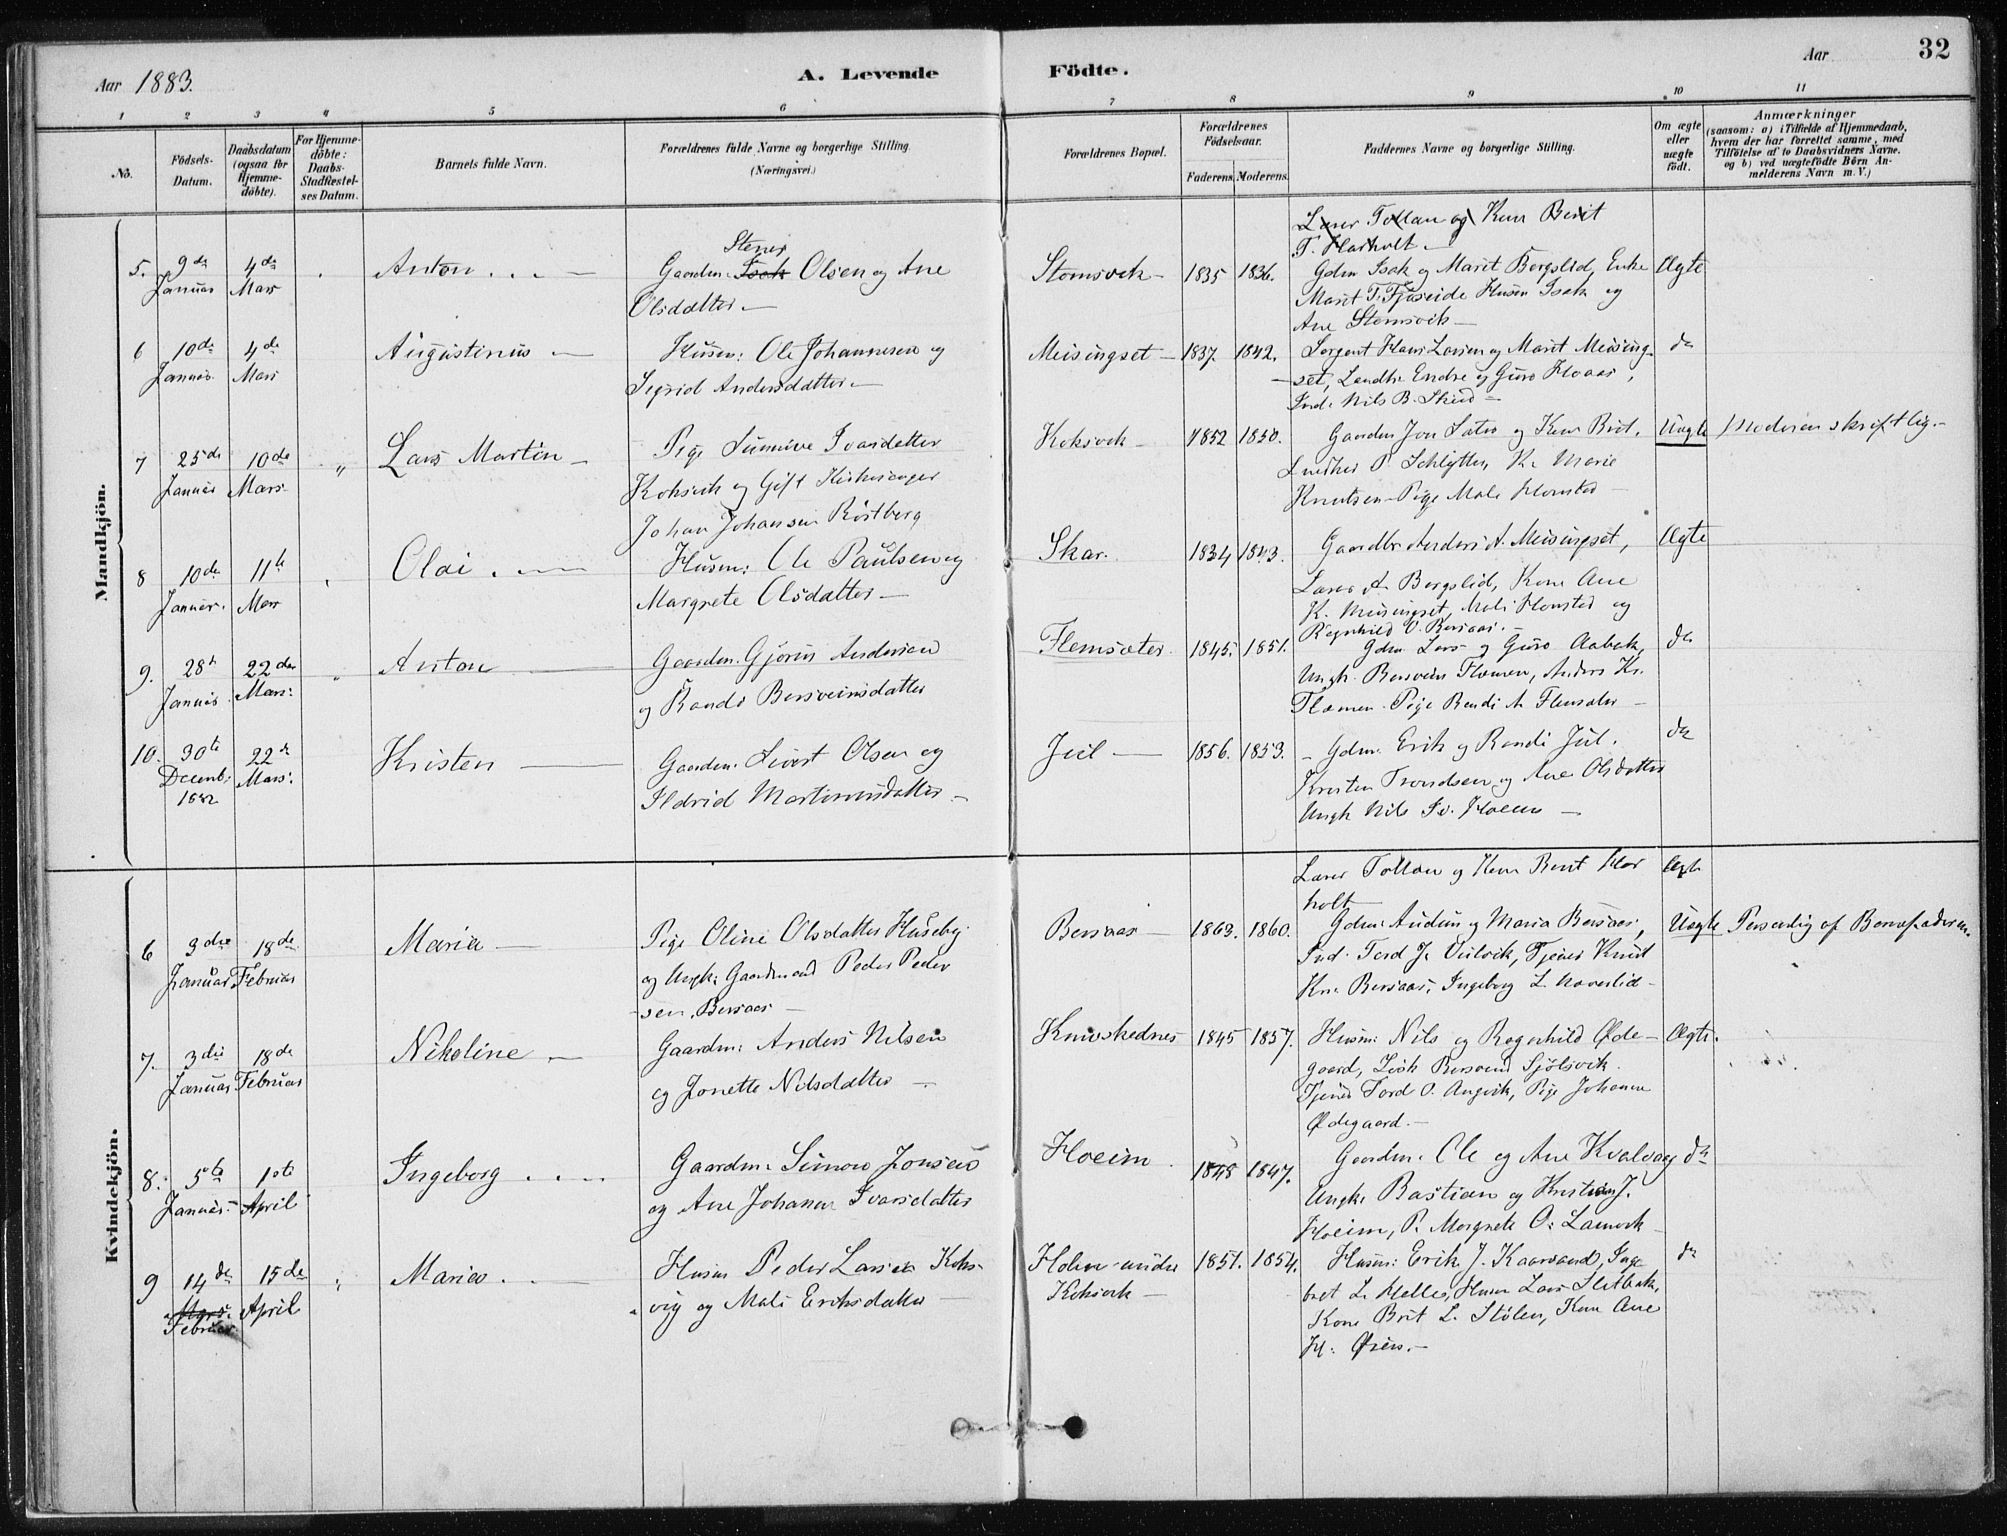 Aar 1883.
A. Levende
Födte.
Aar
32
1 2 3 4 5 6 7 8 9 10 11
No.
Födsels-
Datum.
Daabsdatum
(ogsaa for
Hjemme-
döbte).
For Hjemme-
döbte:
Daabs-
Stadfæstel-
ses Datum.
Barnets fulde Navn.
Forældrenes fulde Navne og borgerlige Stilling.
(Næringsvei.)
Forældrenes Bopæl.
Forældrenes
Födselsaar.
Faderens. Moderens.
Faddernes Navne og borgerlige Stilling.
Om ægte
eller
uægte
födt.
Anmærkninger
(saasom: a) i Tilfælde af Hjemmedaab,
hvem der har forrettet samme, med
Tilföielse af to Daabsvidners Navne,
og b) ved uægtefödte Börn An-
melderens Navn m.V.)
Mandkjön.
Lærer Tollan og Kone Berit
T. Harholt
5. 9de Januar
4de Mars
Anton
Gaardm. Isak Stener Olsen og Ane
Olsdatter
Stomsvik
1835 1836.
Gdm Isak og Marit Borgslid, Enke
Marit T. Fjøseide Husm Isak og
Ane Stomsvik
Ægte
6 10de Januar.
4de Mars
Augustinus
Husm: Ole Johannesen og
Sigrid Andersdatter
Meisingset
1837. 1842.
Sergent Hans Larsen og Marit Meising-
set, Landhr Endre og Guro Hoaas,
Ind: Nils B. Skeid
do
7 25de Januar
10de Mars
Lars Martin
Pige Sunnive Ivarsdatter
Koksvik og Gift Kirkesanger
Johan Johansen Röstberg
Koksvik
1852 1850.
Gaardm Jon Sæter og Kone Brit,
P. Schlytter, K. Marie
Knutsen Pige Mali Honsted
Uægte
Moderen skriftlig.
8 10de Januar.
11te Mars
Olai
Husm: Ole Paulsen og
Margrete Olsdatter
Skar.
1834 1843.
Gaardbr Anders A. Meisingset,
Lærer A. Borgslid, Kone Ane
K. Meisingset, Mali Honsted og
Ragnhild O. Bersaas.
Ægte
9. 28de Januar
22de Mars.
Anton
Gaardm. Gjörus Andersen
og Randi Bersveinsdatter
Flemsæter
1845. 1851.
Gdm Lars og Guro Aabak,
Ungk. Bersvein Flemmen, Anders Kr.
Flemmen. Pige Randi A. Flemsæter
do
10. 30te Decemb: 1882
22de Mars.
Kristen
Gaardm. Sivert Olsen og
Ildrid Martinusdatter
Juul
1856. 1853.
Gdm. Erik og Randi Juul.
Kristen Trondsen og Ane Olsdatter
Ungk Nils Hoem
do
Kvindekjön.
Lærer Tollan og Kone Berit Har
holt
Ægte
6 3die Januar
18de Februar
Maria
Pige Oline Olsdatter Huseby
og Ungk: Gaardmand Peder Peder
sen, Bersaas
Bersaas
1863. 1860.
Gdm: Audun og Maria Bersaas,
Ind. Tord J. Vulvik, Tjener Knud
Kn. Bersaas, Ingeborg L. Naverlid
Uægte
Personlig af Barnefaderen.
7. 3die Januar
18de Februar
Nikoline
Gaardm: Anders Nilsen
og Jonette Nilsdatter
Knivskednes
1845 1857.
Husm: Nils og Ragnhild Øde-
gaard, Bersvend Sjölsvik.
Tjener Tord O. Angvik, Pige Johanne
Ødegaard.
Ægte.
8. 5te Januar.
1ste April
Ingeborg
Gaardm. Simon Jonsen
og Ane Johanne Ivarsdatter
Hoeim
1848 1847.
Gaardm. Ole og Ane Kvalvaag
Ungk. Bastian og Kristian J.
Hoeim, P. Margrete O. Lamvik
do
9 14de Mars. Februar
15de April
Maria
Husm Peder Larsen Koks-
vig og Mali Eriksdatter
Holm under
Koksvik
1851. 1854.
Husm: Erik J. Kaarvand, Inge
bret L. Melle, Husm Lars Sletbak,
Kone Brit L. Stölen, Kone Ane
H. Øien.
do